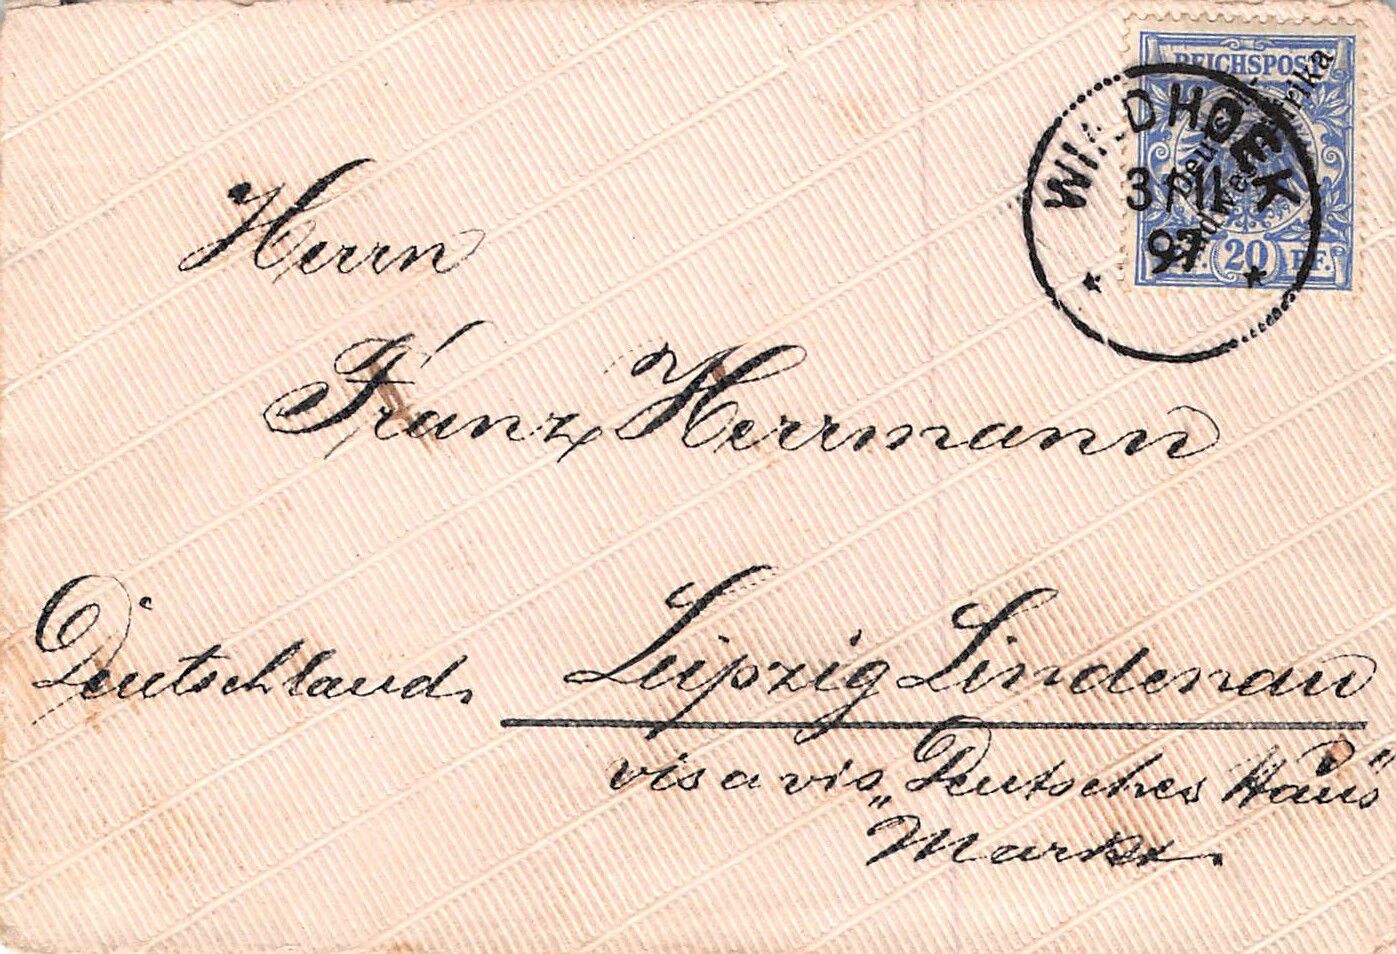 REICHSPOST
Deutsch-
Südwest-Afrika
PF. 20 PF.
WINDHOEK
31 11
97
Herrn
Franz Herrmann
Deutschland.
Leipzig Lindenau
vis a vis „Deutsches Haus"
Markt.